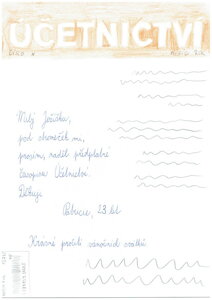 ÚČETNICTVÍ
ČÍSLO
MĚSÍC ROK
Milý Ježíšku,
pod stromeček mi,
prosím, naděl předplatné
časopisu Účetnictví.
Děkuji
23 let
Krásné prožití vánočních svátků